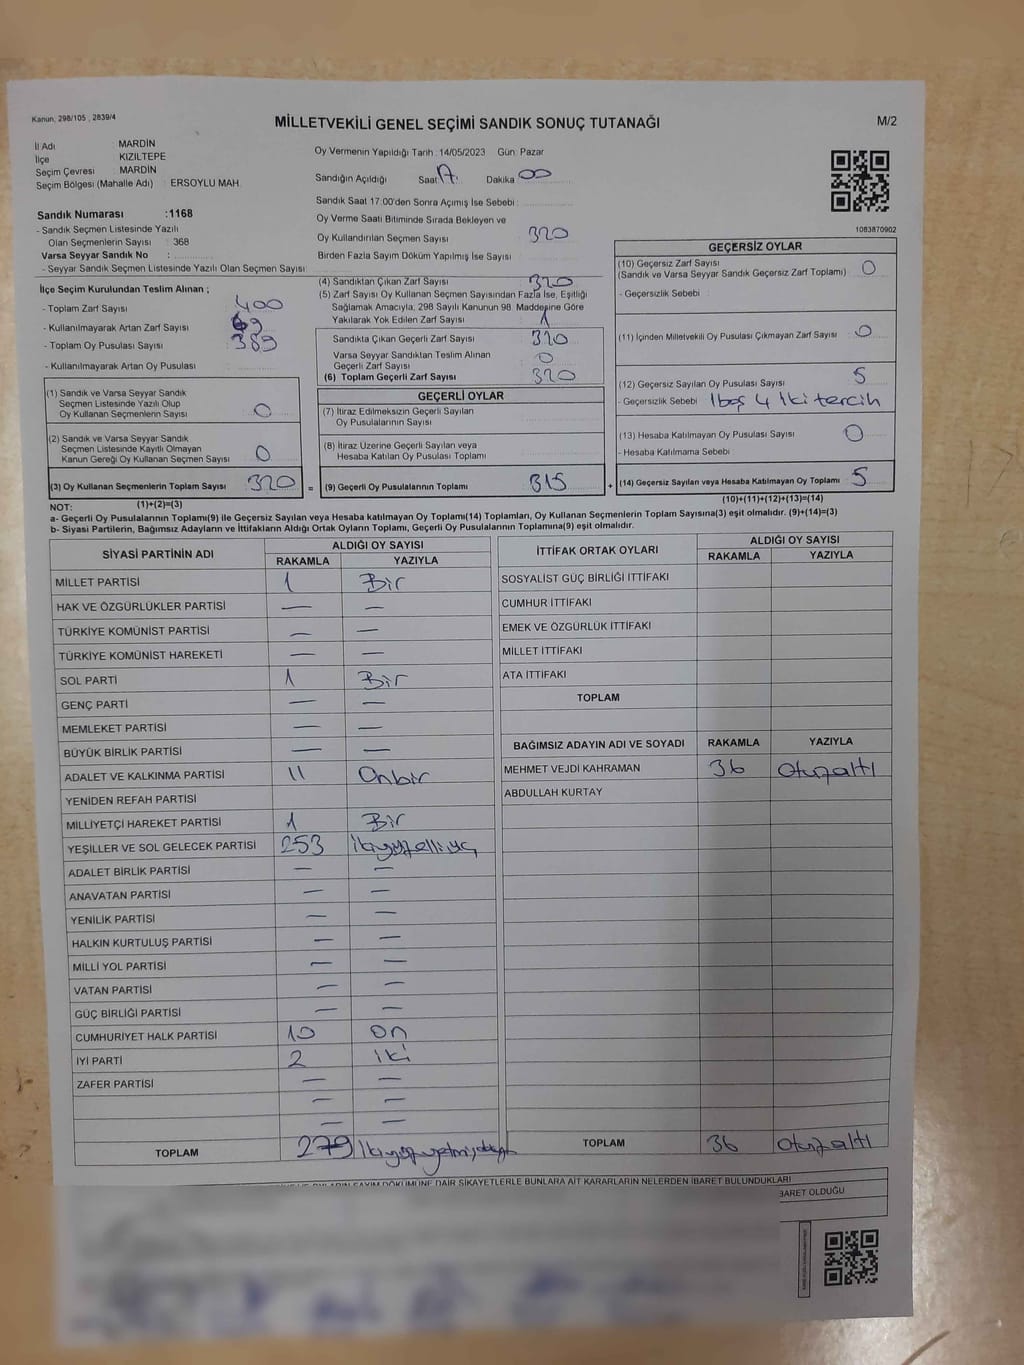 Kanun, 298/105 , 2839/4
MİLLETVEKİLİ GENEL SEÇİMİ SANDIK SONUÇ TUTANAĞI
M/2
İl Adı : MARDİN
İlçe KIZILTEPE
Seçim Çevresi : MARDİN
Seçim Bölgesi (Mahalle Adı) : ERSOYLU MAH.
Sandık Numarası :1168
- Sandık Seçmen Listesinde Yazılı
Olan Seçmenlerin Sayısı : 368
Varsa Seyyar Sandık No :
- Seyyar Sandık Seçmen Listesinde Yazılı Olan Seçmen Sayısı
Oy Vermenin Yapıldığı Tarih : 14/05/2023 Gün: Pazar
Sandığın Açıldığı Saat 17 Dakika 00
Sandık Saat 17:00'den Sonra Açımış İse Sebebi
Oy Verme Saati Bitiminde Sırada Bekleyen ve
Oy Kullandırılan Seçmen Sayısı 320
Birden Fazla Sayım Döküm Yapılmış İse Sayısı
1083870902
İlçe Seçim Kurulundan Teslim Alınan ;
- Toplam Zarf Sayısı 400
- Kullanılmayarak Artan Zarf Sayısı
- Toplam Oy Pusulası Sayısı 389
- Kullanılmayarak Artan Oy Pusulası
(1) Sandık ve Varsa Seyyar Sandık
Seçmen Listesinde Yazılı Olup
Oy Kullanan Seçmenlerin Sayısı 0
(2) Sandık ve Varsa Seyyar Sandık
Seçmen Listesinde Kayıtlı Olmayan
Kanun Gereği Oy Kullanan Seçmen Sayısı 0
(3) Oy Kullanan Seçmenlerin Toplam Sayısı 320
(4) Sandıktan Çıkan Zarf Sayısı 320
(5) Zarf Sayısı Oy Kullanan Seçmen Sayısından Fazla İse, Eşitliği
Sağlamak Amacıyla, 298 Sayılı Kanunun 98. Maddesine Göre
Yakılarak Yok Edilen Zarf Sayısı 1
Sandıkta Çıkan Geçerli Zarf Sayısı 320
Varsa Seyyar Sandıktan Teslim Alınan
Geçerli Zarf Sayısı 0
(6) Toplam Geçerli Zarf Sayısı 320
GEÇERLİ OYLAR
(7) İtiraz Edilmeksizin Geçerli Sayılan
Oy Pusulalarının Sayısı
(8) İtiraz Üzerine Geçerli Sayılan veya
Hesaba Katılan Oy Pusulası Toplamı
= (9) Geçerli Oy Pusulalarının Toplamı 315 +
GEÇERSİZ OYLAR
(10) Geçersiz Zarf Sayısı
(Sandık ve Varsa Seyyar Sandık Geçersiz Zarf Toplamı) 0
- Geçersizlik Sebebi :
(11) İçinden Milletvekili Oy Pusulası Çıkmayan Zarf Sayısı 0
(12) Geçersiz Sayılan Oy Pusulası Sayısı 5
- Geçersizlik Sebebi 1 boş 4 iki tercih
(13) Hesaba Katılmayan Oy Pusulası Sayısı 0
- Hesaba Katılmama Sebebi
(14) Geçersiz Sayılan veya Hesaba Katılmayan Oy Toplamı 5
(1)+(2)=(3)
(10)+(11)+(12)+(13)=(14)
NOT:
a- Geçerli Oy Pusulalarının Toplamı(9) ile Geçersiz Sayılan veya Hesaba katılmayan Oy Toplamı(14) Toplamları, Oy Kullanan Seçmenlerin Toplam Sayısına(3) eşit olmalıdır. (9)+(14)=(3)
b- Siyasi Partilerin, Bağımsız Adayların ve İttifakların Aldığı Ortak Oyların Toplamı, Geçerli Oy Pusulalarının Toplamına(9) eşit olmalıdır.
SİYASİ PARTİNİN ADI ALDIĞI OY SAYISI
RAKAMLA YAZIYLA
MİLLET PARTİSİ 1 Bir
HAK VE ÖZGÜRLÜKLER PARTİSİ — —
TÜRKİYE KOMÜNİST PARTİSİ — —
TÜRKİYE KOMÜNİST HAREKETİ — —
SOL PARTİ 1 Bir
GENÇ PARTİ — —
MEMLEKET PARTİSİ — —
BÜYÜK BİRLİK PARTİSİ — —
ADALET VE KALKINMA PARTİSİ 11 Onbir
YENİDEN REFAH PARTİSİ
MİLLİYETÇİ HAREKET PARTİSİ 1 Bir
YEŞİLLER VE SOL GELECEK PARTİSİ 253 İkiyüzelliüç
ADALET BİRLİK PARTİSİ — —
ANAVATAN PARTİSİ — —
YENİLİK PARTİSİ — —
HALKIN KURTULUŞ PARTİSİ — —
MİLLİ YOL PARTİSİ — —
VATAN PARTİSİ — —
GÜÇ BİRLİĞİ PARTİSİ — —
CUMHURİYET HALK PARTİSİ 10 On
İYİ PARTİ 2 iki
ZAFER PARTİSİ — —
— —
— —
TOPLAM 279
İTTİFAK ORTAK OYLARI ALDIĞI OY SAYISI
RAKAMLA YAZIYLA
SOSYALİST GÜÇ BİRLİĞİ İTTİFAKI
CUMHUR İTTİFAKI
EMEK VE ÖZGÜRLÜK İTTİFAKI
MİLLET İTTİFAKI
ATA İTTİFAKI
TOPLAM
BAĞIMSIZ ADAYIN ADI VE SOYADI RAKAMLA YAZIYLA
MEHMET VEJDİ KAHRAMAN 36 Otuzaltı
ABDULLAH KURTAY
TOPLAM 36 Otuzaltı
SAYIM DÖKÜMÜNE DAİR ŞİKAYETLERLE BUNLARA AİT KARARLARIN NELERDEN İBARET BULUNDUKLARI
BARET OLDUĞU